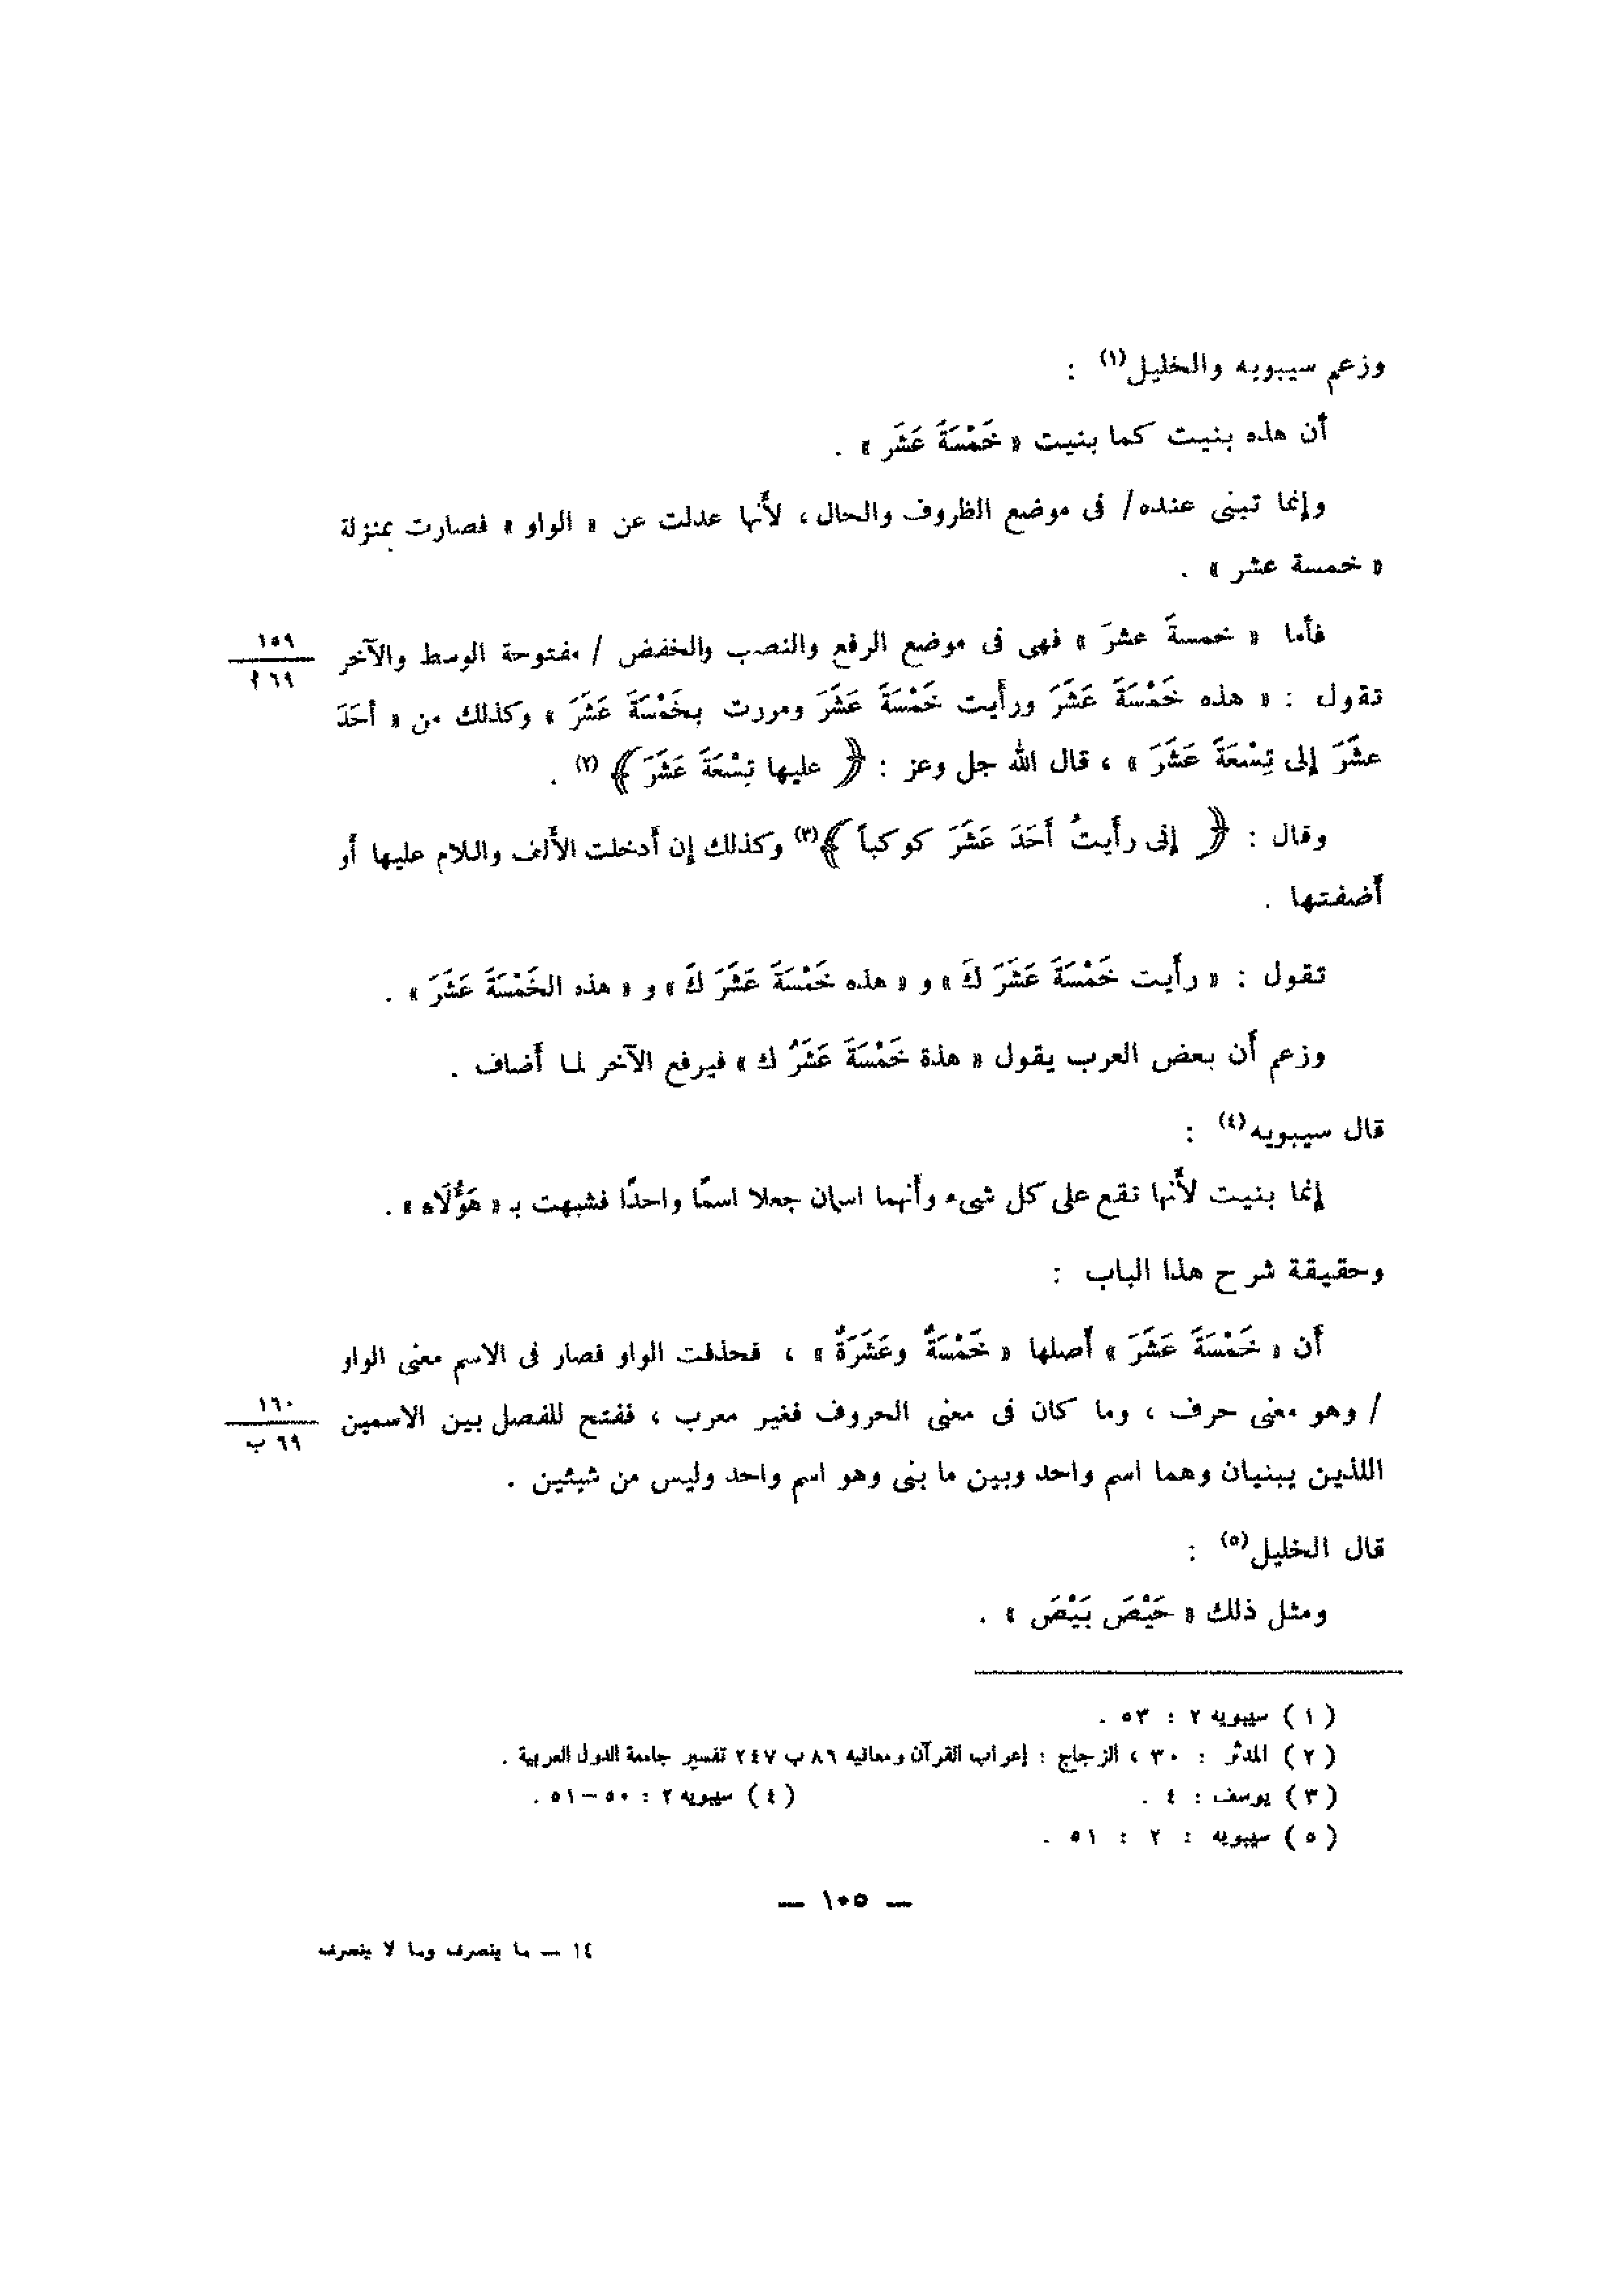 وزعم سيبويه والخليل(١) :
أن هذه بنيت كما بنيت « خَمْسَةَ عَشَر » .
وإنما تبنى عنده/ فى موضع الظروف والحال ، لأنها عدلت عن « الواو » فصارت بمنزلة
« خمسة عشر » .
فأما « خمسةَ عشرَ » فهى فى موضع الرفع والنصب والخفض / مفتوحة الوسط والآخر
١٥٩
٦٩ ا
تقول : « هذه خَمْسَةَ عَشَرَ ورأيت خَمْسَةَ عَشَرَ ومررت بخَمْسَةَ عَشَرَ » وكذلك من « أحَدَ
عشَرَ إلى تِسْعَةَ عَشَرَ » ، قال الله جل وعز : ﴿ عليها تِسْعَةَ عَشَرَ ﴾(٢) .
وقال : ﴿ إنى رأَيتُ أَحَدَ عَشَرَ كوكباً ﴾(٣) وكذلك إن أدخلت الألف واللام عليها أو
أضفتها .
تقول : « رأَيت خَمْسَةَ عَشَرَ كَ » و « هذه خَمْسَةَ عَشَرَ كَ » و « هذه الخَمْسَةَ عَشَرَ » .
وزعم أن بعض العرب يقول « هذة خَمْسَةَ عَشَرُ ك » فيرفع الآخر لما أضاف .
قال سيبويه(٤) :
إنما بنيت لأنها تقع على كل شىء وأنهما اسمان جعلا اسمًا واحدًا فشبهت بـ « هَؤُلَاء » .
وحقيقة شرح هذا الباب :
أن « خَمْسَةَ عَشَرَ » أصلها « خَمْسَةٌ وعَشَرَةٌ » ، فحذفت الواو فصار فى الاسم معنى الواو
/ وهو معنى حرف ، وما كان فى معنى الحروف فغير معرب ، ففتح للفصل بين الاسمين
١٦٠
٦٩ ب
اللذين يبنيان وهما اسم واحد وبين ما بنى وهو اسم واحد وليس من شيئين .
قال الخليل(٥) :
ومثل ذلك « حَيْصَ بَيْصَ » .
( ١ ) سيبويه ٢ : ٥٣ .
( ٢ ) المدثر : ٣٠ ، الزجاج : إعراب القرآن ومعانيه ٨٦ ب ٢٤٧ تفسير جامعة الدول العربية .
( ٣ ) يوسف : ٤ . ( ٤ ) سيبويه ٢ : ٥٠ – ٥١ .
( ٥ ) سيبويه : ٢ : ٥١ .
— ١٠٥ —
١٤ — ما ينصرف وما لا ينصرف